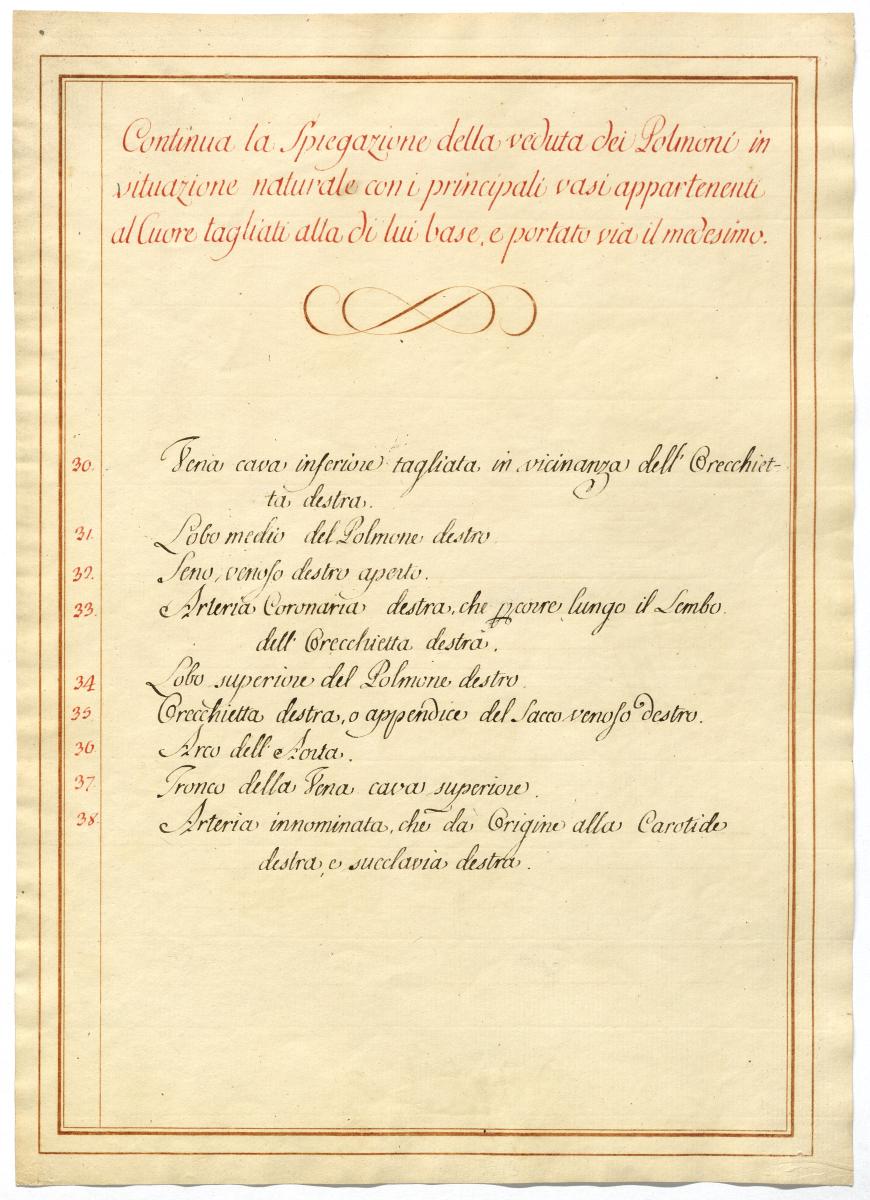 Continua la Spiegazione della veduta dei Polmoni in
situazione naturale con i principali vasi appartenenti
al Cuore tagliati alla di lui base, e portato via il medesimo.
30. Vena cava inferiore tagliata in vicinanza dell' Orecchiet-
ta destra.
31. Lobo medio del Polmone destro
32. Seno venoso destro aperto.
33. Arteria Coronaria destra, che pcorre lungo il Lembo
dell' Orecchietta destra.
34 Lobo superiore del Polmone destro.
35 Orecchietta destra, o appendice del Sacco venoso destro.
36 Arco dell' Aorta.
37 Tronco della Vena cava superiore.
38. Arteria innominata, che dà Origine alla Carotide
destra, e succlavia destra.